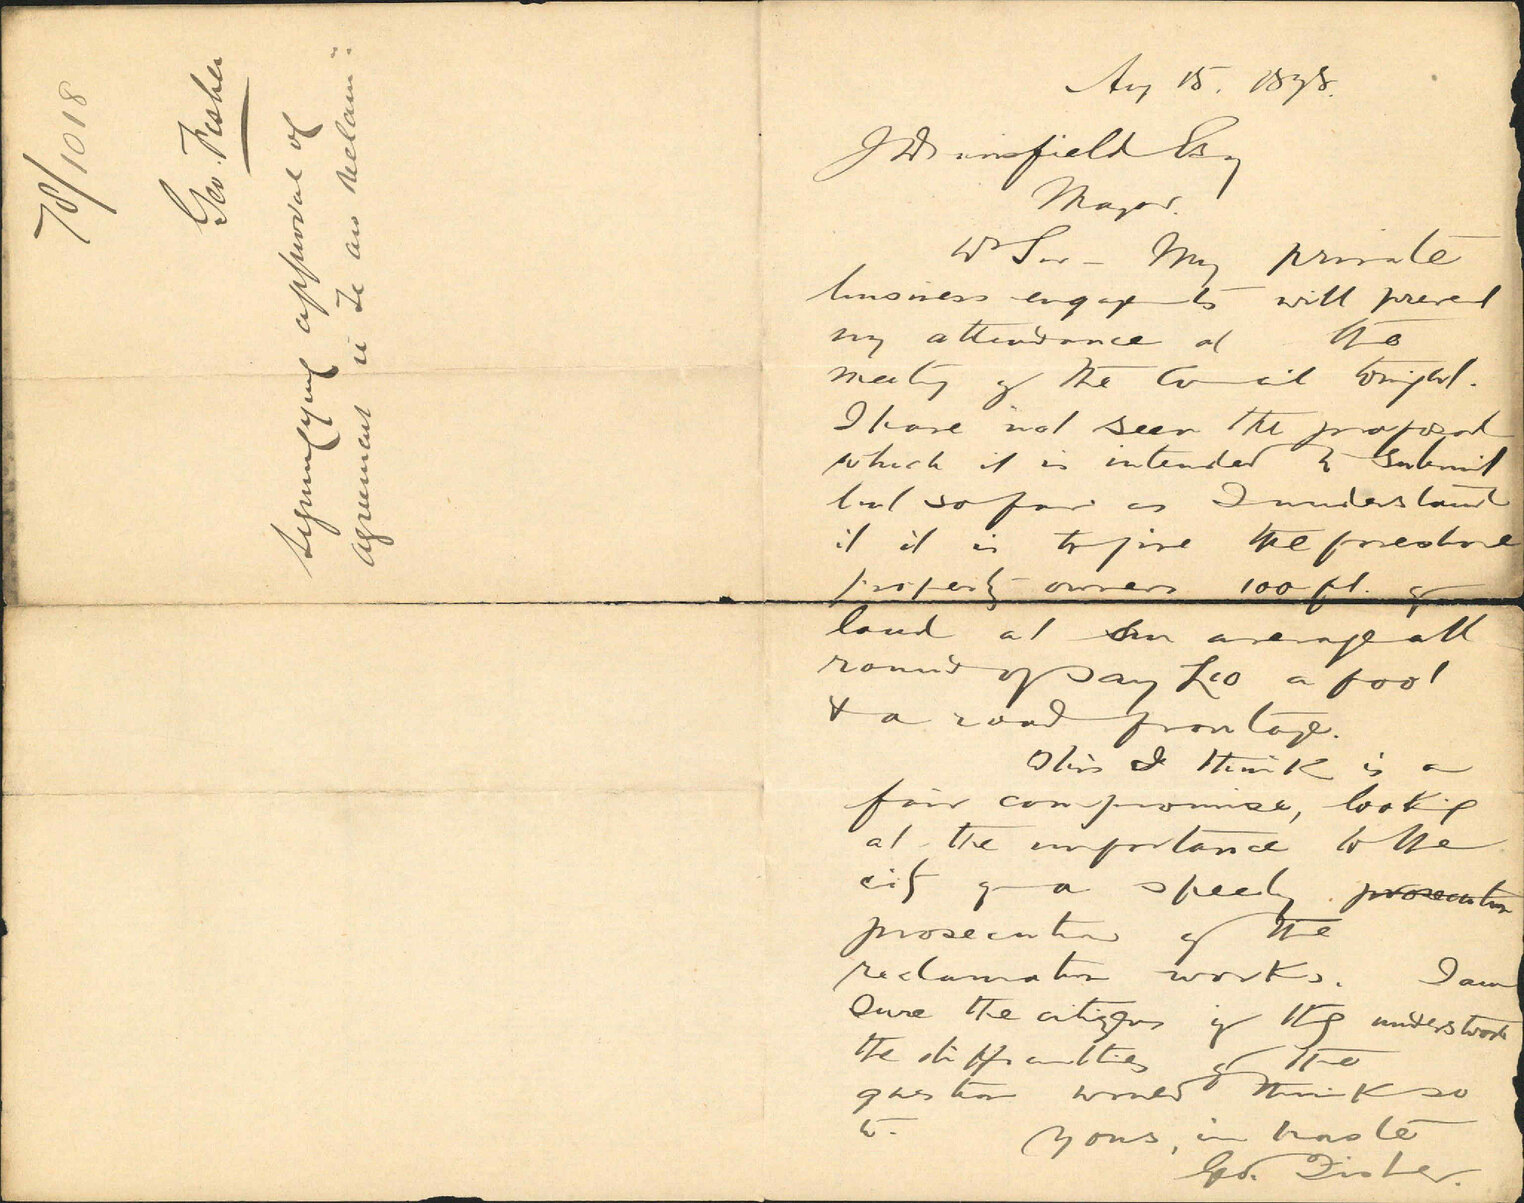 78/1018
Geo. Fisher
Signifying approval of
agreement re Te Aro Reclam:
Aug 15. 1878.
J Dransfield Esq
Mayor.
Dr Sir - My private
business engagements will prevent
my attendance at the
meeting of the Council tonight.
I have not seen the proposal
which it is intended to submit
but so far as I understand
it it is to give the foreshore
property owners 100 ft. of
land at an average all
round of say £20 a foot
& a road frontage.
This I think is a
fair compromise, looking
at the importance to the
city of a speedy prosecution
prosecution of the
reclamation works. I am
sure the citizens if they understood
the difficulties of the
question would think so
to. Yours, in haste
Geo. Fisher.